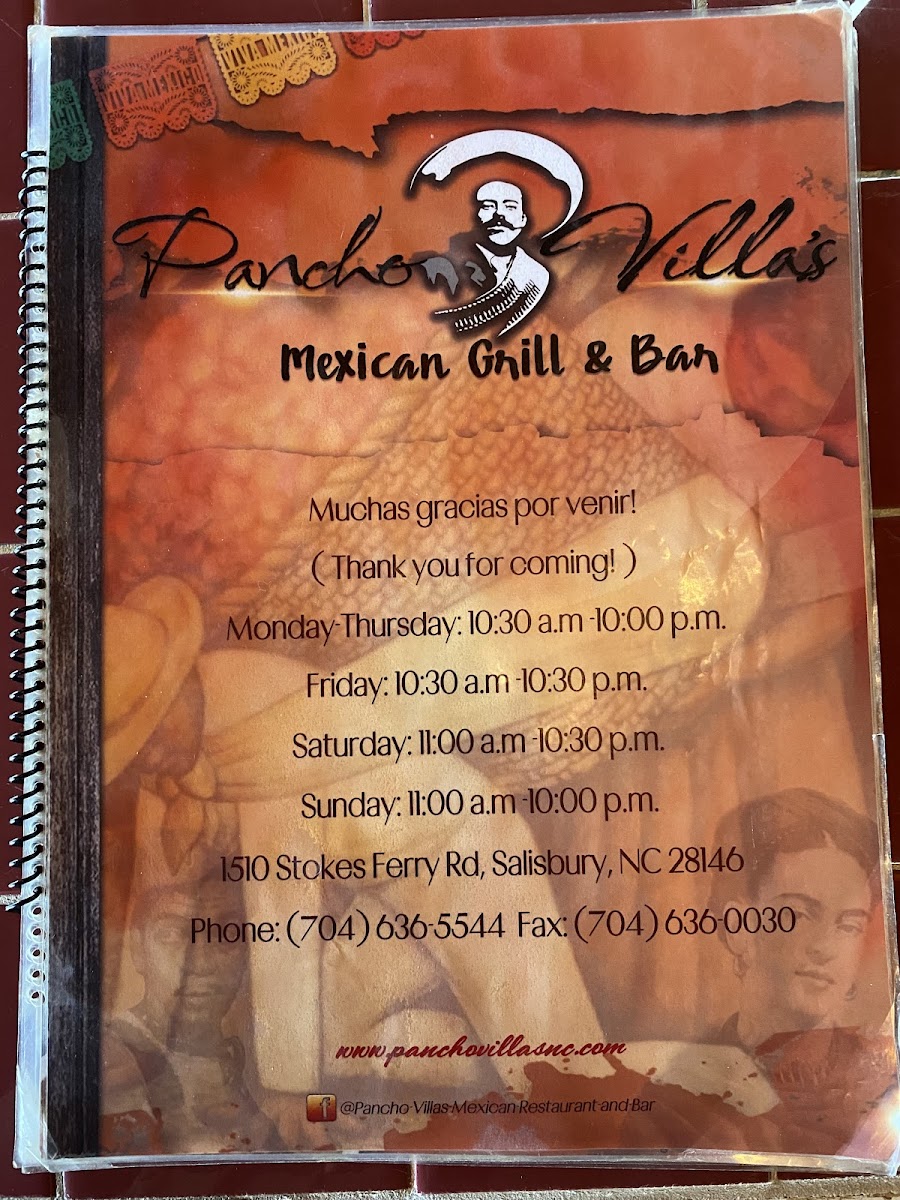 VIVA MEXICO
VIVA MEXICO
Pancho Villa's
Mexican Grill & Bar
Muchas gracias por venir!
( Thank you for coming! )
Monday-Thursday: 10:30 a.m -10:00 p.m.
Friday: 10:30 a.m -10:30 p.m.
Saturday: 11:00 a.m -10:30 p.m.
Sunday: 11:00 a.m -10:00 p.m.
1510 Stokes Ferry Rd, Salisbury, NC 28146
Phone: (704) 636-5544 Fax: (704) 636-0030
www.panchovillasnc.com
f @Pancho-Villas-Mexican-Restaurant-and-Bar